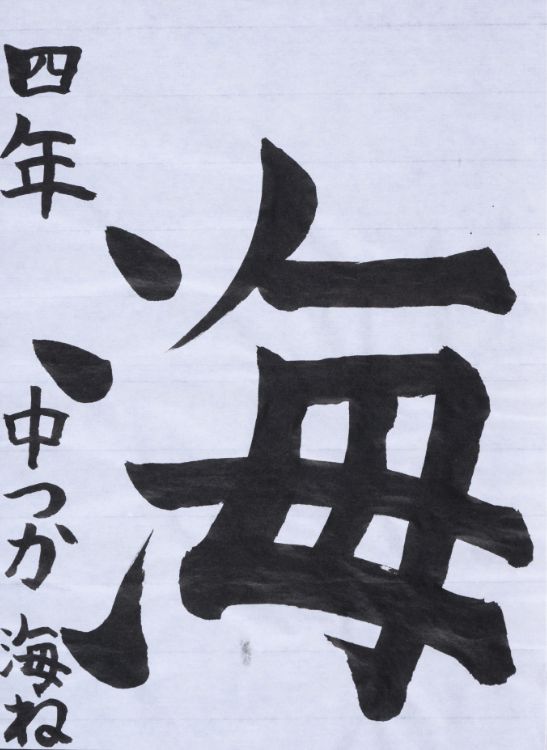 海
四年 中つか 海ね